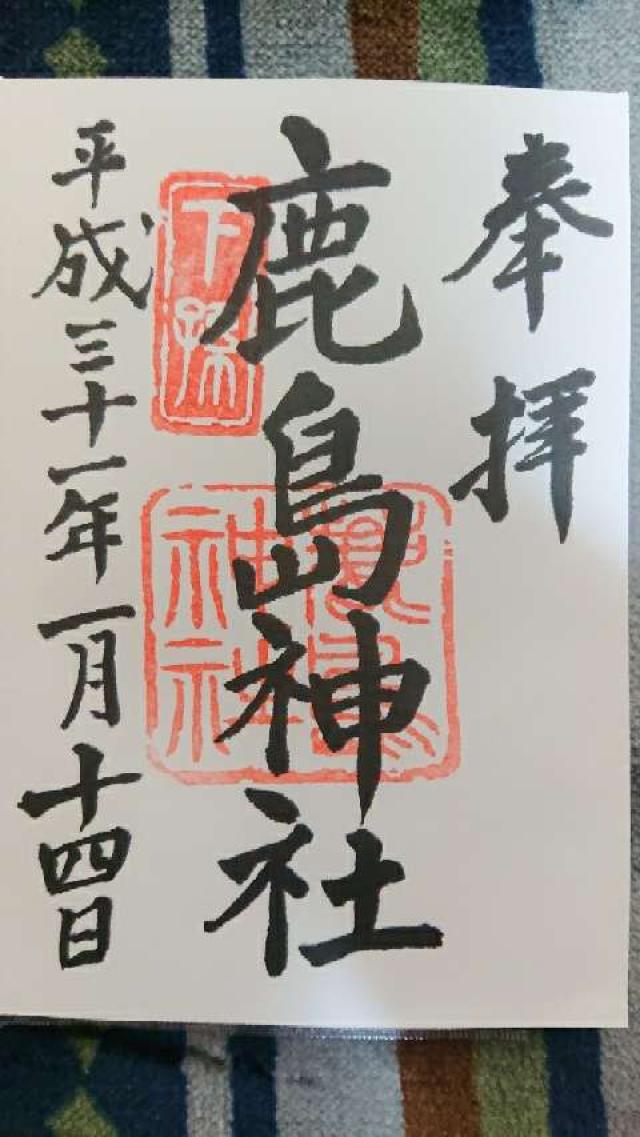 奉拝
鹿島神社
下孫
鹿島神社
平成三十一年一月十四日